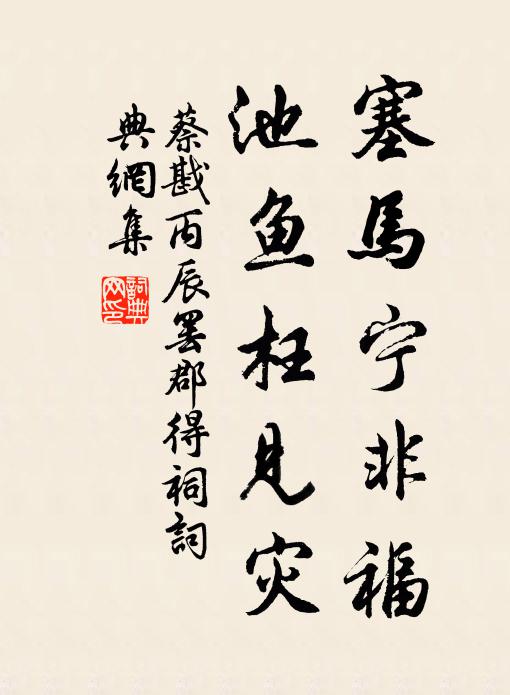 塞馬宁非福
池鱼枉见灾
蔡戡丙辰罢郡得祠詞
典網集
詞典
网印